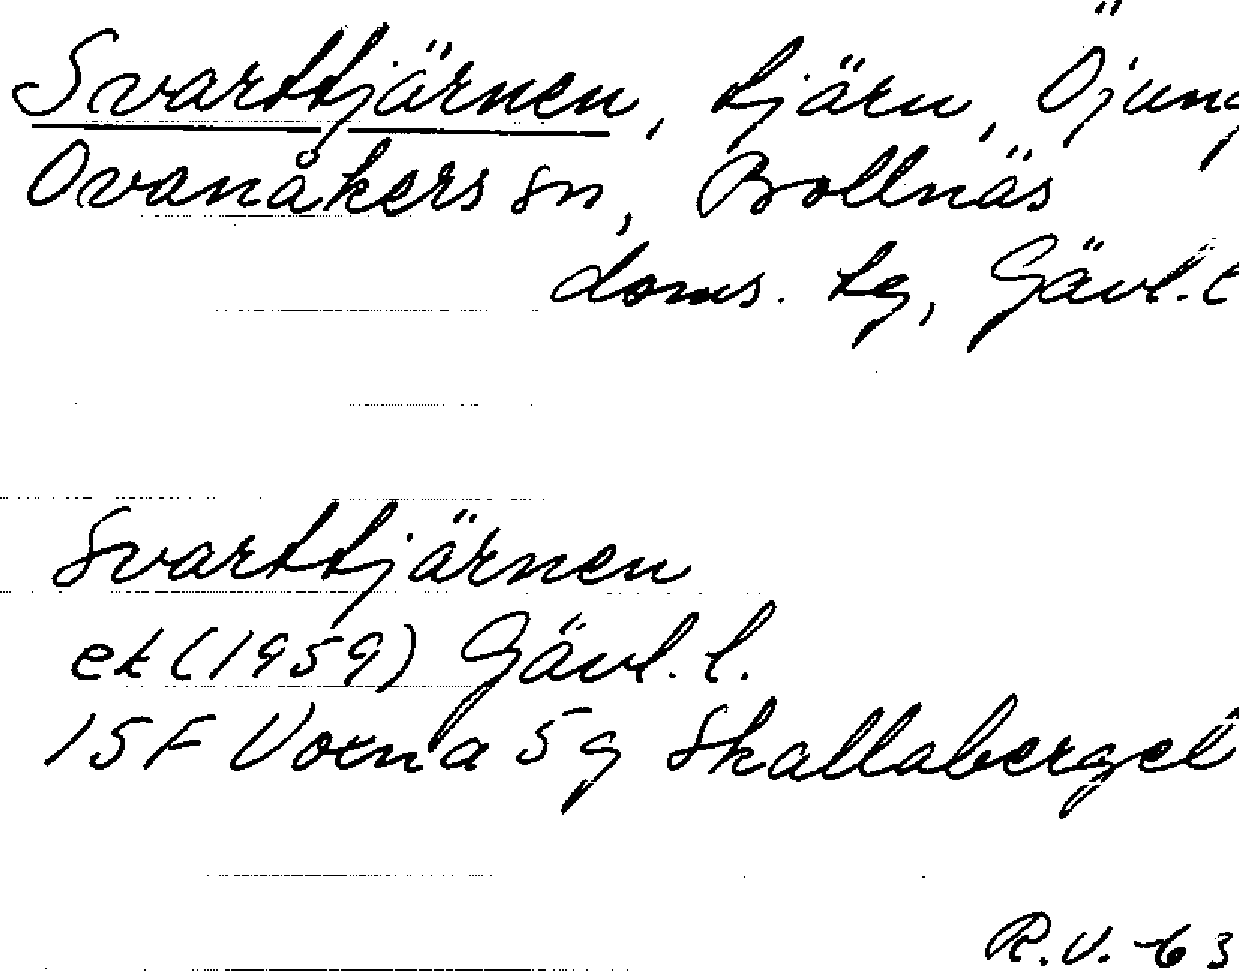 Svarttjärnen, tjärn, Öjung
Ovanåkers sn, Bollnäs
doms. tg, Gävl.l
Svarttjärnen
ek (1959) Gävl. l.
15F Voxna 5g Skallaberget
R.V. -63